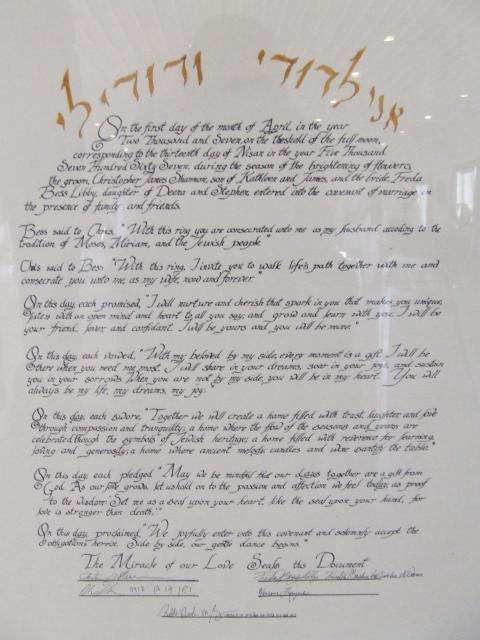 אני לדודי ודודי לי
On the first day of the month of April, in the year
Two Thousand and Seven, on the theshold of the full moon,
corresponding to the thirteenth day of Nisan in the year Five Thousand
Seven Hundred Sixty Seven, during the season of the brightening of flowers,
the groom, Christopher James Shannon, son of Kathleen and James, and the bride, Freda
Bess Libby, daughter of Deena and Stephen, entered into the covenant of marriage in
the presence of family and friends.
Bess said to Chris, "With this ring you are consecrated unto me as my husband according to the
tradition of Moses, Miriam, and the Jewish people."
Chris said to Bess "With this ring, I invite you to walk life's path together with me and
consecrate you unto me, as my wife, now and forever."
On this day, each promised, "I will nurture and cherish that spark in you that makes you unique,
listen with an open mind and heart to all you say, and grow and learn with you. I will be
your friend, lover, and confidant. I will be yours and you will be mine."
On this day, each vowed, "With my beloved by my side, every moment is a gift. I will be
there when you need me most. I will share in your dreams, soar in your joys, and sustain
you in your sorrows. When you are not by my side, you will be in my heart. You will
always be my life, my dreams, my joy."
On this day, each swore, "Together we will create a home filled with trust, laughter, and love
through compassion and tranquility, a home where the flow of the seasons and years are
celebrated though the symbols of Jewish heritage; a home filled with reverence for learning,
loving and generosity; a home where ancient melody, candles and wine sanctify the table."
On this day each pledged "May we be mindful that our days together are a gift from
God. As our love grows, let us hold on to the passion and affection we feel today, as proof
to the wisdom: Set me as a seal upon your heart, like the seal upon your hand, for
love is stronger than death."
On this day proclaimed, "We joyfully enter into this covenant and solemnly accept the
obligations herein. Side by side, our gentle dance begins."
The Miracle of our Love Seals this Document